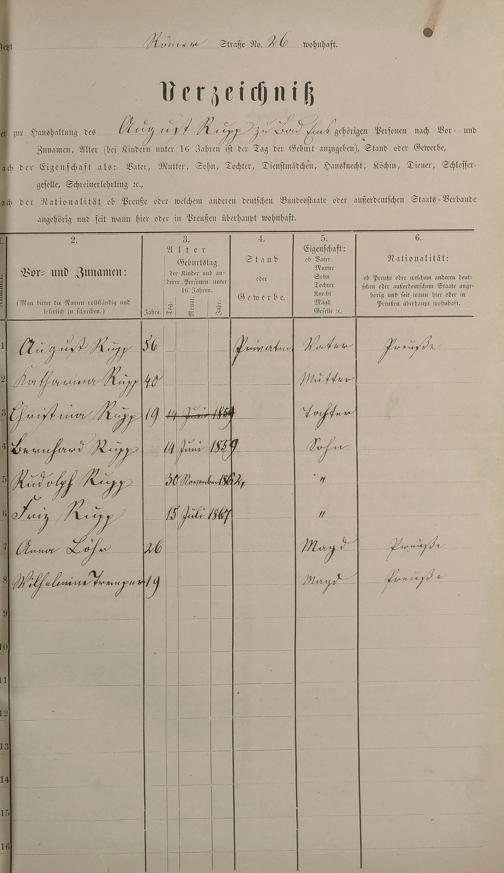 Römer Straße No. 26 wohnhaft.
Verzeichniß
zur Haushaltung des August Rupp zu Bad Ems gehörigen Personen nach Vor- und
Zunamen, Alter (bei Kindern unter 16 Jahren ist der Tag der Geburt anzugeben), Stand oder Gewerbe,
nach der Eigenschaft als: Vater, Mutter, Sohn, Tochter, Dienstmädchen, Hausknecht, Köchin, Diener, Schlosser-
geselle, Schreinerlehrling ꝛc.,
nach der Nationalität ob Preuße oder welchem anderen deutschen Bundesstaate oder außerdeutschen Staats-Verbande
angehörig und seit wann hier oder in Preußen überhaupt wohnhaft.
2. 3. 4. 5. 6.
Vor- und Zunamen:
(Man bittet die Namen vollständig und
leserlich zu schreiben.)
Alter
Geburtstag
der Kinder und an-
derer Personen unter
16 Jahren.
Jahre. Tag. Monat. Jahr.
Stand
oder
Gewerbe.
Eigenschaft:
ob Vater
Mutter
Sohn
Tochter
Knecht
Magd
Geselle ꝛc.
Nationalität:
ob Preuße oder welchem anderen deut-
schen oder außerdeutschen Staate ange-
hörig und seit wann hier oder in
Preußen überhaupt wohnhaft.
1 August Rupp 56 Vater Preuße
2 Katharina Rupp 40 Mutter
3 Christina Rupp 19 14 Juni 1859 Tochter
4 Bernhard Rupp 14 Juni 1859 Sohn
5 Rudolph Rupp 30 November 1862 "
6 Friz Rupp 15 Juli 1867 "
7 Anna Löhr 26 Magd Preuße
8 Wilhelmine 19 Magd Preuße
9
10
11
12
13
14
15
16